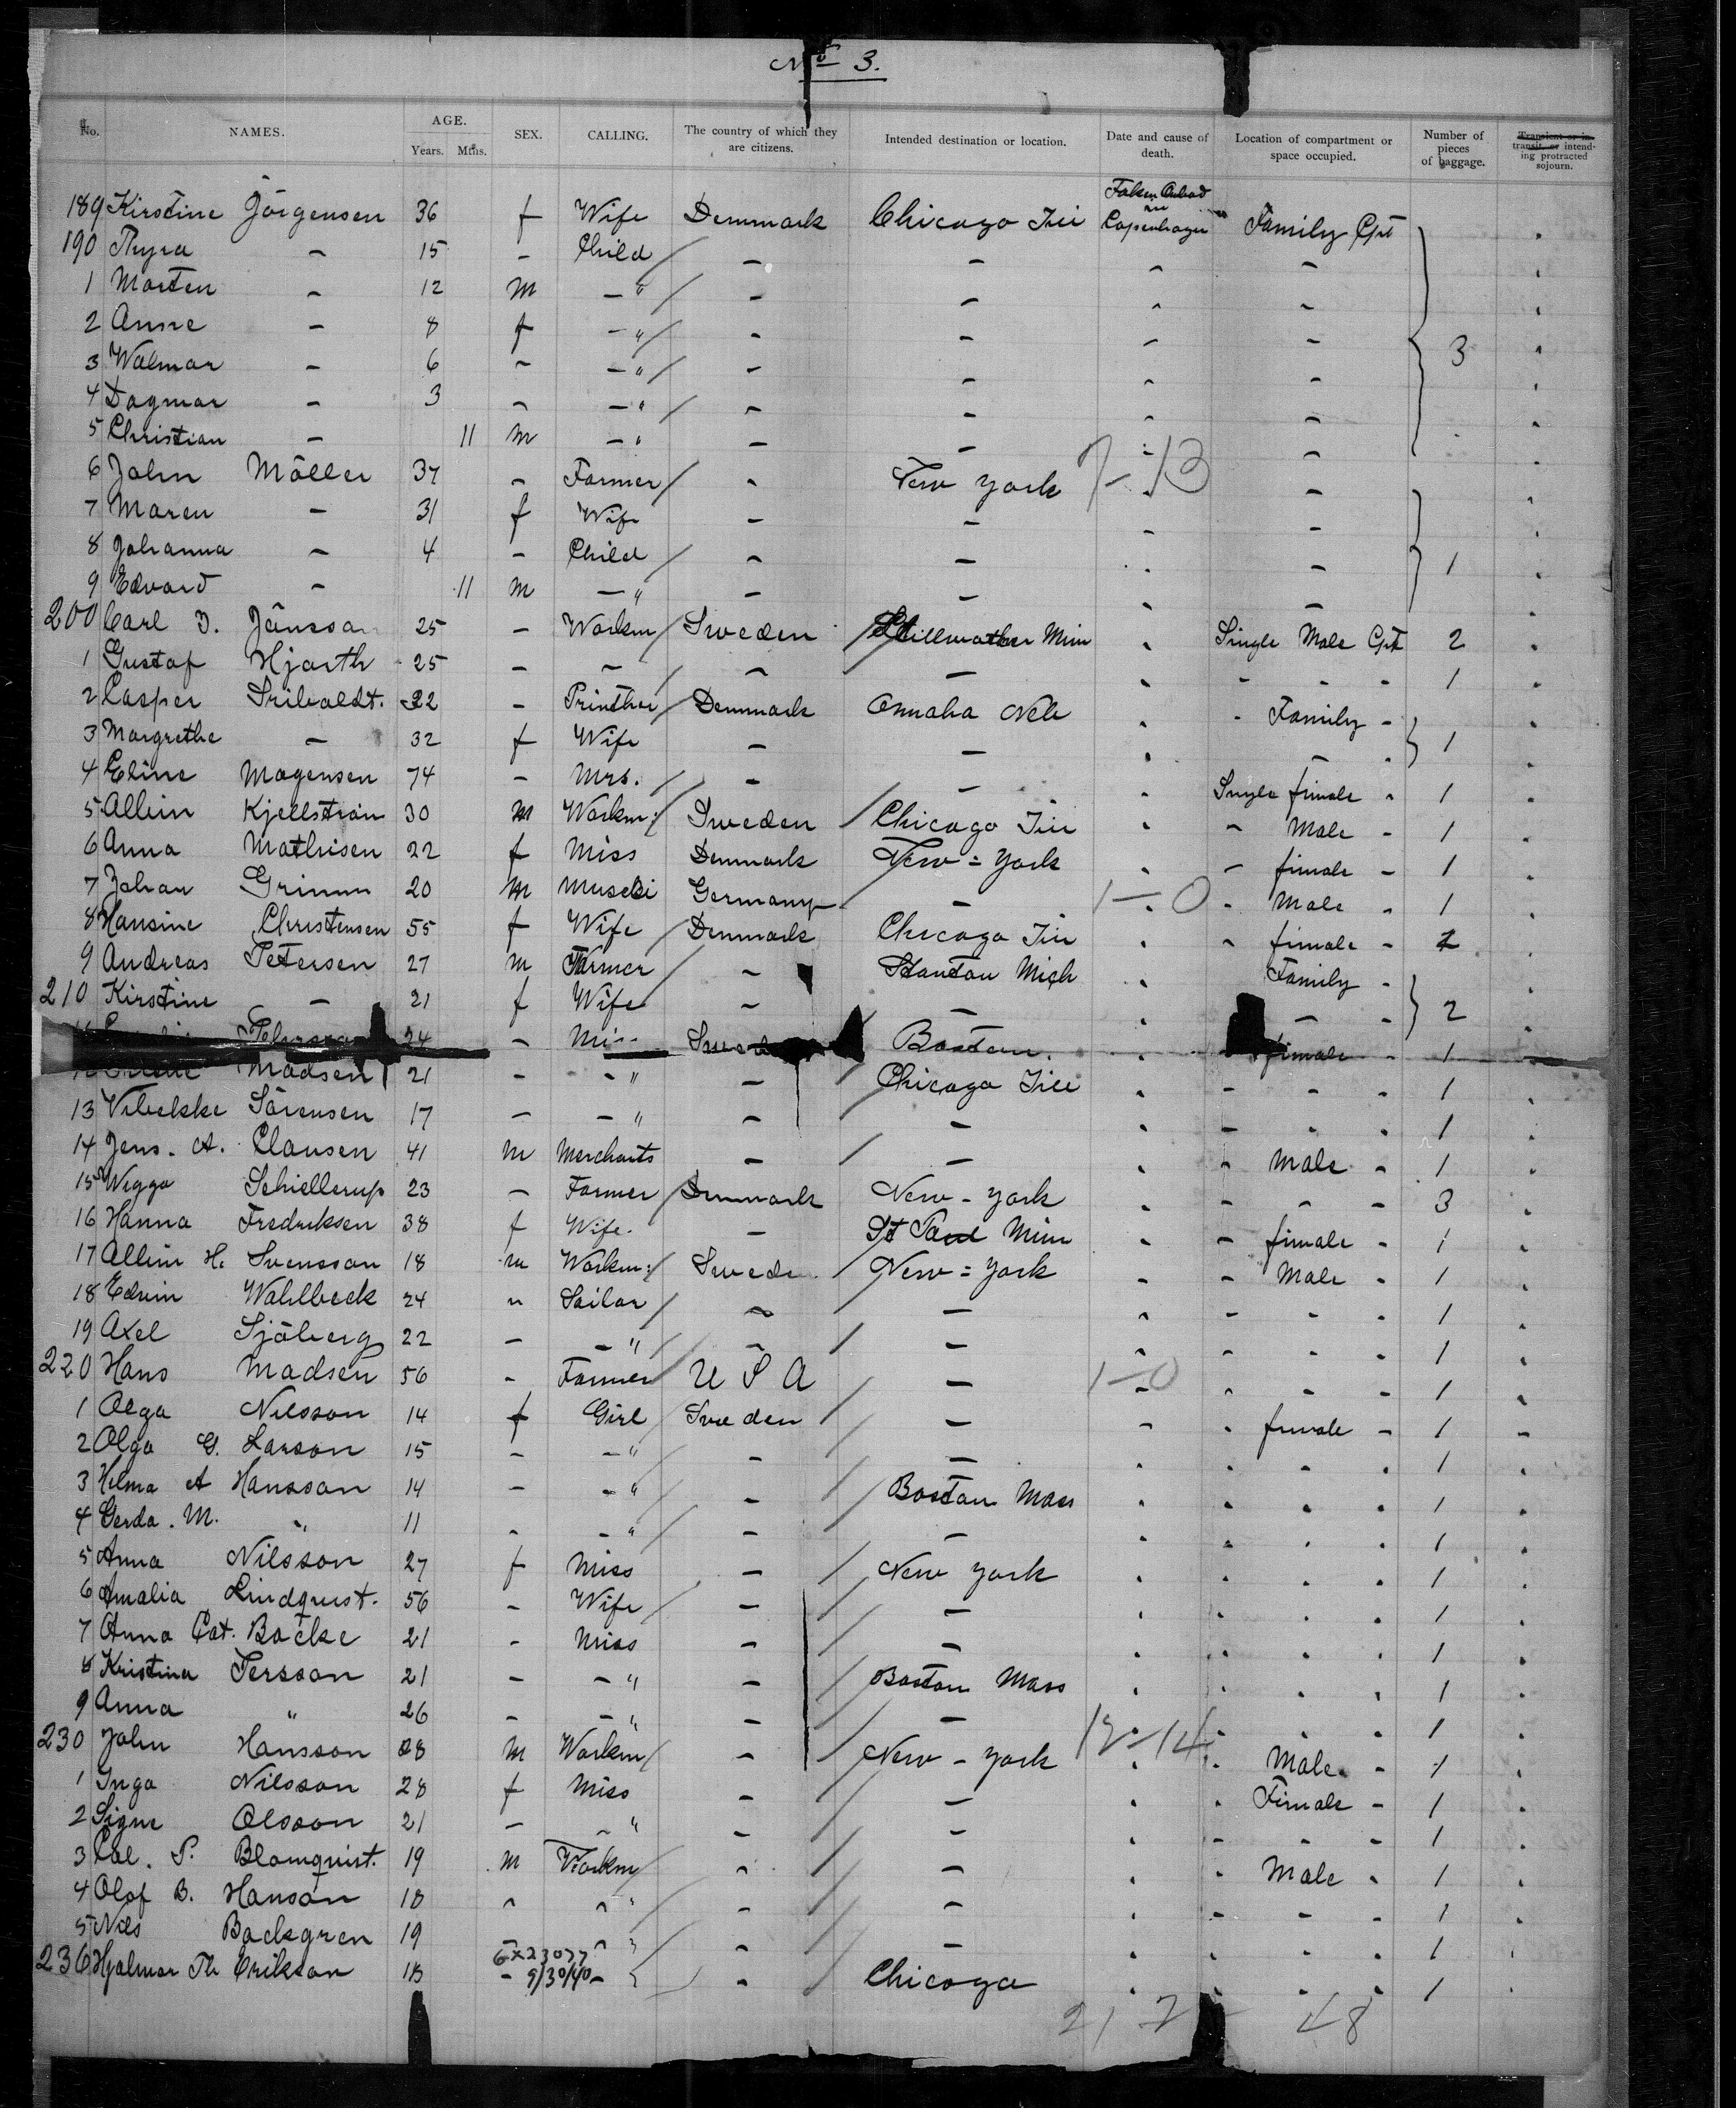 No 3.
No. NAMES. AGE. Years. Mths. SEX. CALLING. The country of which they are citizens. Intended destination or location. Date and cause of death. Location of compartment or space occupied. Number of pieces of baggage. Transient or in transit, or intending protracted sojourn.
189 Kirstine Jörgensen 36 f Wife Denmark Chicago Ill Taken Onbord in Copenhagen Family Cpt
190 Thyra - 15 - Child / - - - -
1 Morten - 12 m - " / - - - -
2 Anne - 8 f - " / - - - -
3 Walmar - 6 - - " / - - - - 3
4 Dagmar - 3 - - " / - - - -
5 Christian - 11 m - " - - - -
6 John Möller 37 - Farmer / - New York 7-13 -
7 Maren - 31 f Wife - - - -
8 Johanna - 4 - Child / - - - - 1
9 Edvard - 11 m - " - - - -
200 Carl J. Jönsson 25 - Workm / Sweden / Stillwather Minn - Single Male Cpt 2
1 Gustaf Hjorth 25 - - / - - - - - - 1
2 Casper Sriboldt. 32 - Printher / Denmark Omaha Neb - - Family -
3 Margrethe - 32 f Wife - - - - - 1
4 Eline Mogensen 74 - Mrs. / - - - Single female - 1
5 Albin Kjellström 30 m Workm: / Sweden / Chicago Ill - - Male - 1
6 Anna Mathisen 22 f Miss Denmark New = York - - female - 1
7 Johan Grimm 20 m Museki Germany - 1-0 - Male - 1
8 Hansine Christensen 55 f Wife / Denmark Chicago Ill - - female - 2
9 Andreas Petersen 27 m Farmer / - Stanton Mich - Family -
210 Kirstine - 21 f Wife - - - - - 2
Pehrsson 24 - Miss Sweden Boston. - female - 1
Madsen 21 - - " - / Chicago Ill - - - - 1
13 Vibekke Sörensen 17 - - " - - - - - - 1
14 Jens. A. Clausen 41 m Merchants - / - - - Male - 1
15 Wiggo Schiellerup 23 - Farmer / Denmark New - York - - - - 3
16 Hanna Fredriksen 38 f Wife. - St Paul Minn - - female - 1
17 Albin H. Svensson 18 m Workm: / Sweden / New = York - - Male - 1
18 Edvin Wahlbeck 24 " Sailor / - - - - - - 1
19 Axel Sjöberg 22 - - " / - / - - - - - 1
220 Hans Madsen 56 - Farmer / U S A - 1-0 - - - 1
1 Olga Nilsson 14 f Girl / Sweden / - - - female - 1 -
2 Olga G. Larson 15 - - " - / - - - - - 1
3 Hilma A Hansson 14 - - " - / Boston Mass - - - - 1
4 Gerda. M. " 11 - - " / - - - - - - 1
5 Anna Nilsson 27 f Miss - / New York - - - - 1
6 Amalia Lindquist. 56 - Wife / - / - - - - - 1
7 Anna Cat. Bocke 21 - Miss - / - - - - - 1
8 Kristina Persson 21 - - " - / Boston Mass - - - - 1
9 Anna " 26 - - " - / - - - - - 1
230 John Hansson 28 m Workm / - / New - York 12-14 - Male - 1
1 Inga Nilsson 28 f Miss - / - - - Female - 1
2 Signe Olsson 21 - - " - / - - - - - 1
3 Cal. P. Blomquist. 19 m Workm / - / - - - Male - 1
4 Olof B. Hanson 18 " " " / - / - - - - - 1
5 Nils Backgren 19 - " " - / - - - - - 1
6X23077
236 Hjalmar Th Erikson 18 - 9/30/40 - - / Chicago - - - - 1
21 7 48